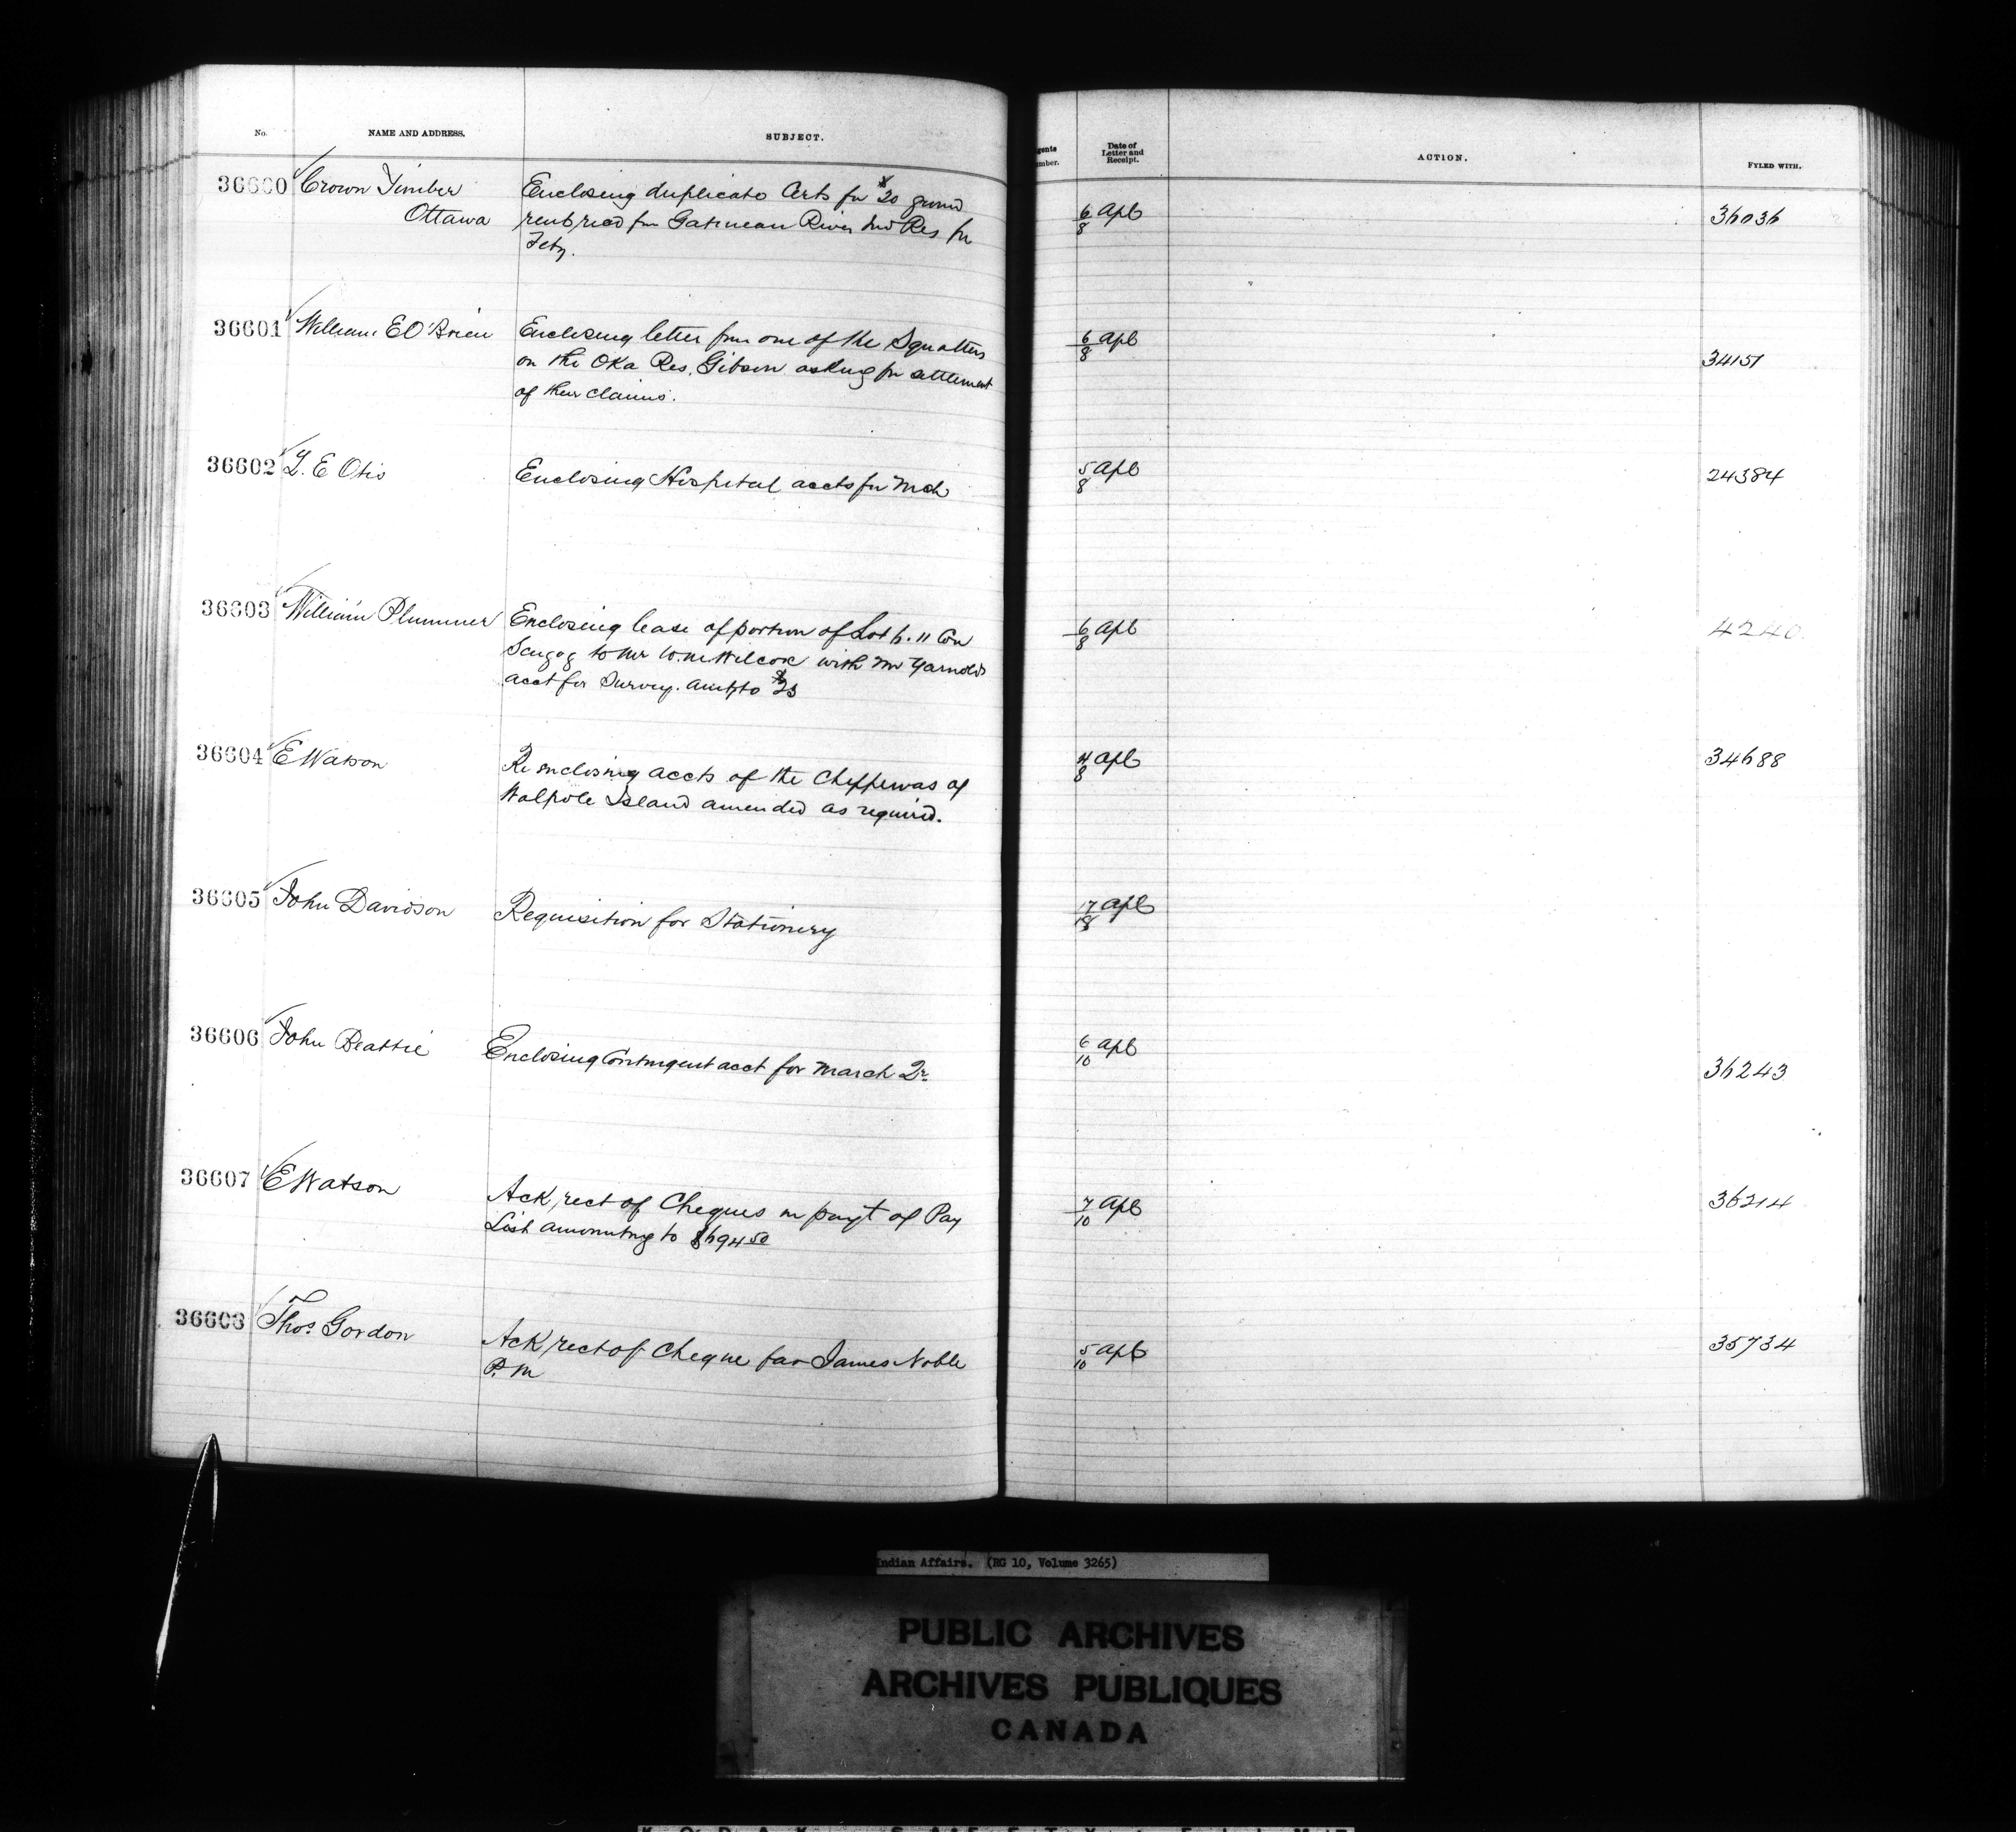 No. NAME AND ADDRESS. SUBJECT.
gents
umber.
Date of
Letter and
Receipt.
ACTION. FYLED WITH.
36600 Crown Timber
Ottawa
Enclosing duplicate Certs for $20 ground
rent recd fm Gatineau River Ind Res for
Feby.
6/8 Apl
36036
36601 William E O'Brien
Enclosing letter from one of the Squatters
on the Oka Res. Gibson asking for settlement
of their claims.
6/8 Apl
34151
36602 L. E Otis
Enclosing Hospital accts for Mch
5/8 Apl
24384
36603 William Plummer
Enclosing lease of portion of Lot 6. 11 Con
Scugog to Mr W.M Wilcox with Mr Yarnolds
acct for Survey. amtg to $25
6/8 Apl
4240
36604 E Watson
Re enclosing accts of the Chippewas of
Walpole Island amended as required.
4/8 Apl
34688
36605 John Davidson
Requisition for Stationery
17/18 Apl
36606 John Beattie
Enclosing Contingent acct for March Qr
6/10 Apl
36243
36607 E Watson
Ack, rect of Cheques in payt of Pay
List amounting to $694 50
7/10 Apl
36214
36608 Thos. Gordon
Ack, rect of Cheque for James Noble
P. M
5/10 Apl
35734
Indian Affairs. (RG 10, Volume 3265)
PUBLIC ARCHIVES
ARCHIVES PUBLIQUES
CANADA